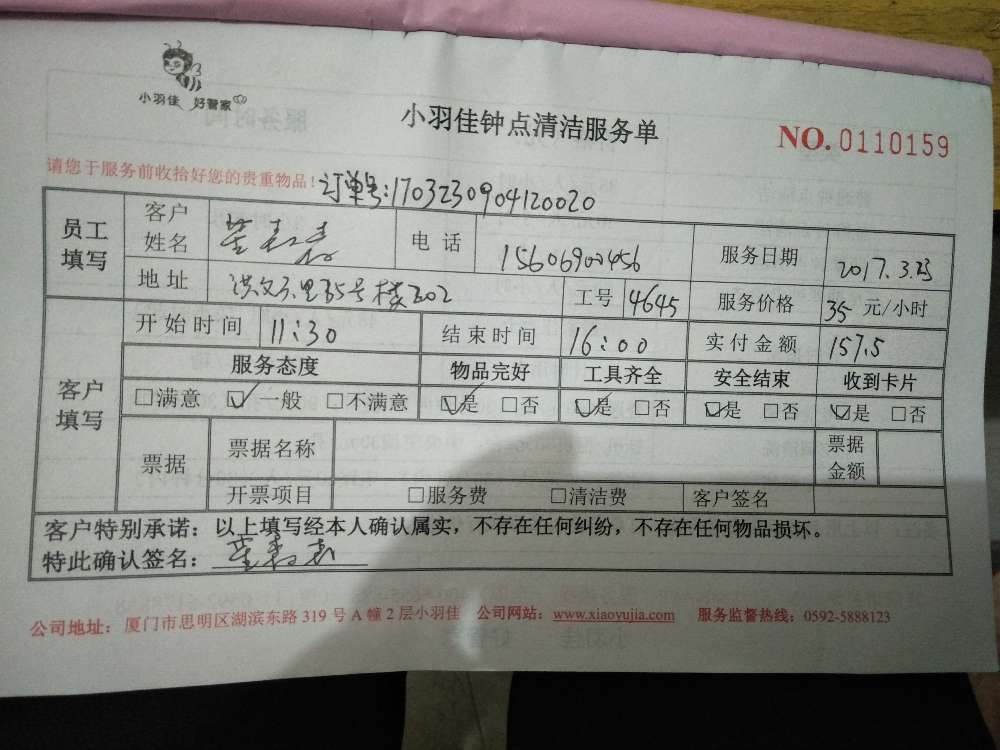 小羽佳 好管家
小羽佳钟点清洁服务单
NO.0110159
请您于服务前收拾好您的贵重物品!
订单号:1703230904120020
员工填写
客户姓名
电话 15606900456
服务日期 2017.3.23
地址
工号 4645
服务价格 35 元/小时
客户填写
开始时间 11:30
结束时间 16:00
实付金额 157.5
服务态度 物品完好 工具齐全 安全结束 收到卡片
□满意 ☑一般 □不满意 ☑是 □否 ☑是 □否 ☑是 □否 ☑是 □否
票据
票据名称
票据金额
开票项目 □服务费 □清洁费 客户签名
客户特别承诺：以上填写经本人确认属实，不存在任何纠纷，不存在任何物品损坏。
特此确认签名：
公司地址：厦门市思明区湖滨东路 319 号 A 幢 2 层小羽佳 公司网站：www.xiaoyujia.com 服务监督热线：0592-5888123